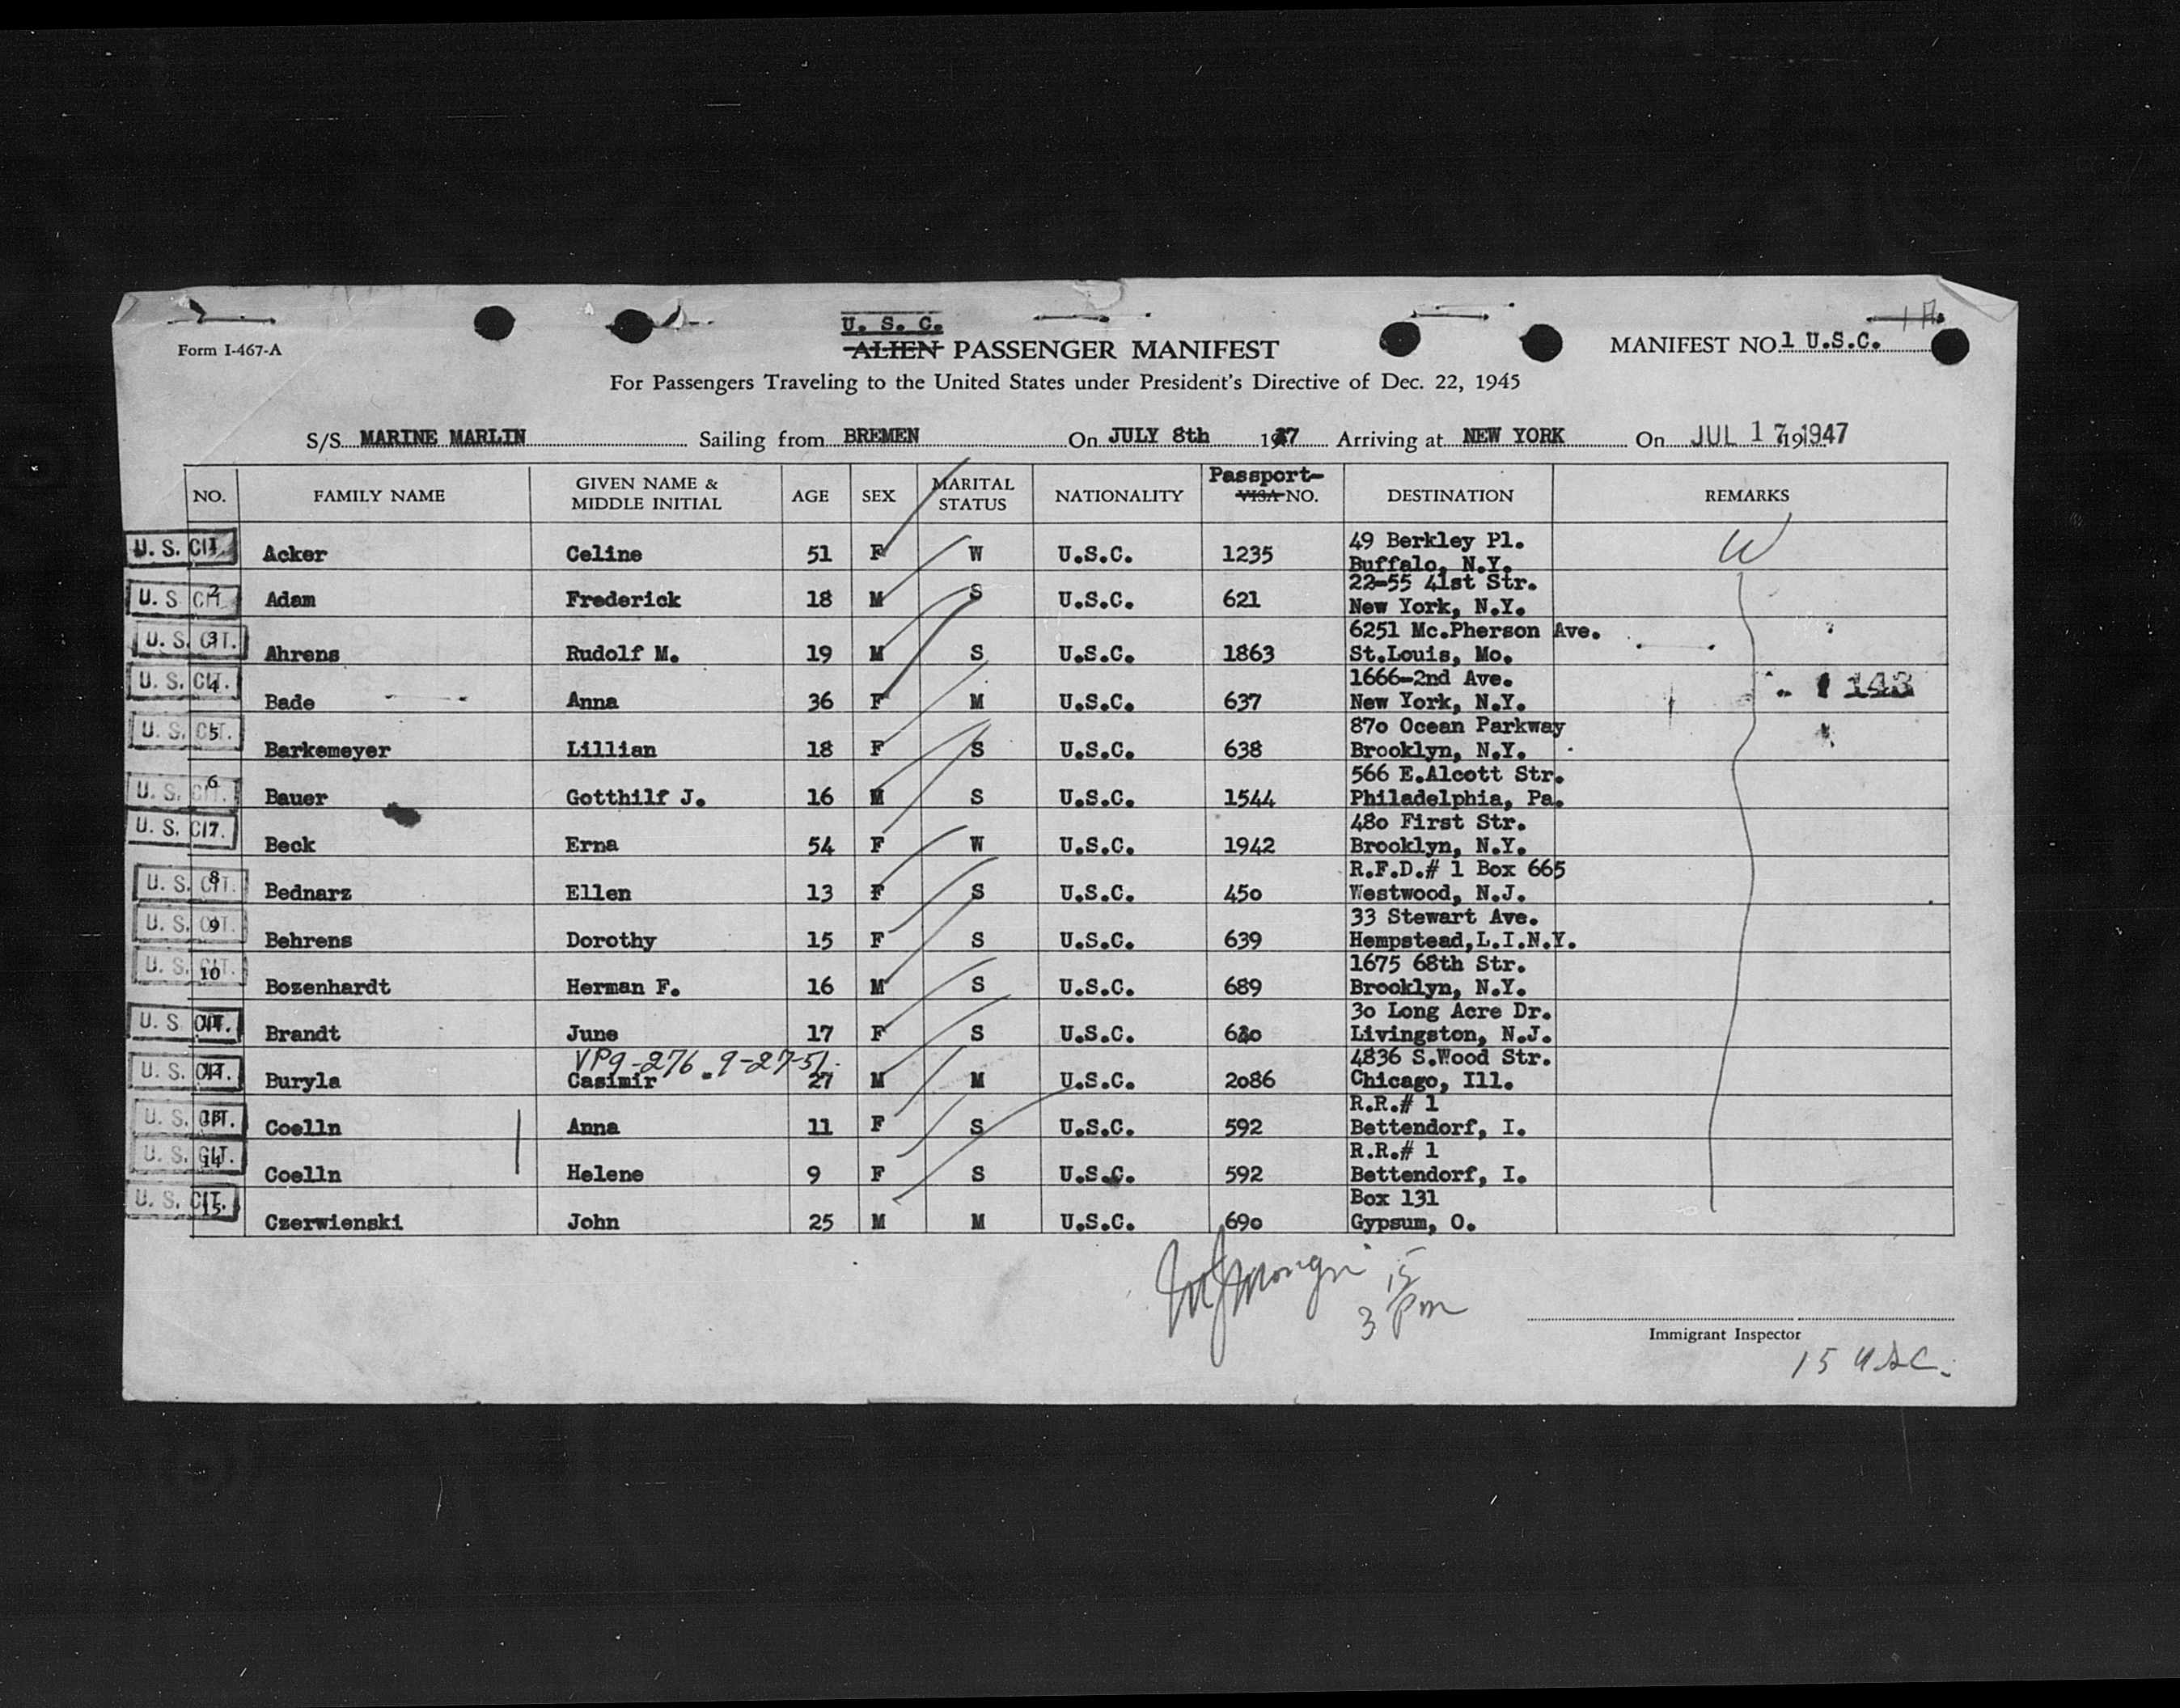 Form I-467-A
U. S. C.
ALIEN PASSENGER MANIFEST
MANIFEST NO. 1 U.S.C.
For Passengers Traveling to the United States under President's Directive of Dec. 22, 1945
S/S MARINE MARLIN Sailing from BREMEN On JULY 8th 1947 Arriving at NEW YORK On JUL 17 1947
NO. FAMILY NAME GIVEN NAME & MIDDLE INITIAL AGE SEX MARITAL STATUS NATIONALITY Passport- VISA NO. DESTINATION REMARKS
U. S. CIT. 1 Acker Celine 51 F W U.S.C. 1235 49 Berkley Pl. Buffalo, N.Y. W
U. S. CIT. 2 Adam Frederick 18 M S U.S.C. 621 22-55 41st Str. New York, N.Y.
U. S. CIT. 3 Ahrens Rudolf M. 19 M S U.S.C. 1863 6251 Mc.Pherson Ave. St.Louis, Mo.
U. S. CIT. 4 Bade Anna 36 F M U.S.C. 637 1666-2nd Ave. New York, N.Y. 143
U. S. CIT. 5 Barkemeyer Lillian 18 F S U.S.C. 638 870 Ocean Parkway Brooklyn, N.Y.
U. S. CIT. 6 Bauer Gotthilf J. 16 M S U.S.C. 1544 566 E.Alcott Str. Philadelphia, Pa.
U. S. CIT. 7 Beck Erna 54 F W U.S.C. 1942 480 First Str. Brooklyn, N.Y.
U. S. CIT. 8 Bednarz Ellen 13 F S U.S.C. 450 R.F.D.# 1 Box 665 Westwood, N.J.
U. S. CIT. 9 Behrens Dorothy 15 F S U.S.C. 639 33 Stewart Ave. Hempstead,L.I.N.Y.
U. S. CIT. 10 Bozenhardt Herman F. 16 M S U.S.C. 689 1675 68th Str. Brooklyn, N.Y.
U. S. CIT. Brandt June 17 F S U.S.C. 30 Long Acre Dr. Livingston, N.J.
VP9-276. 9-27-51.
U. S. CIT. Buryla Casimir 27 M M U.S.C. 2086 4836 S.Wood Str. Chicago, Ill.
U. S. CIT. Coelln Anna 11 F S U.S.C. 592 R.R.# 1 Bettendorf, I.
U. S. CIT. 14 Coelln Helene 9 F S U.S.C. 592 R.R.# 1 Bettendorf, I.
U. S. CIT. 15 Czerwienski John 25 M M U.S.C. 690 Box 131 Gypsum, O.
15
3 pm
Immigrant Inspector
15 USC.